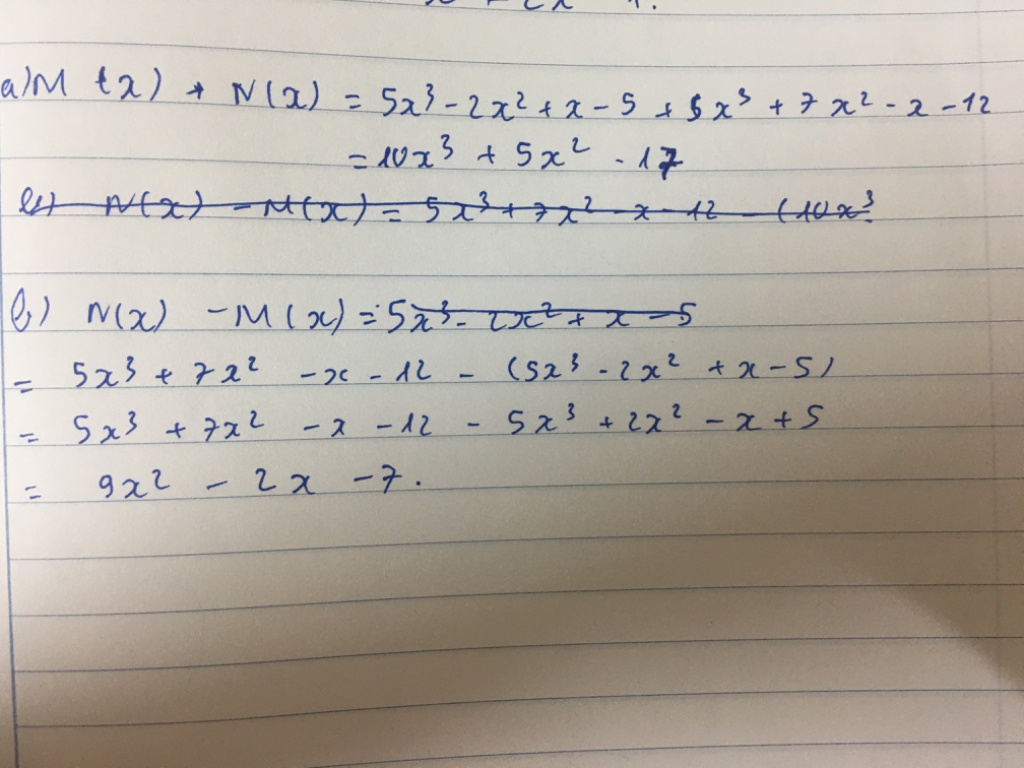 a) M (x) + N(x) = 5x³ - 2x² + x - 5 + 5x³ + 7x² - x - 12
= 10x³ + 5x² - 17
N(x) - M(x) = 5x³ + 7x² - x - 12 - (10x³
b) N(x) - M(x) = 5x³ - 2x² + x - 5
= 5x³ + 7x² - x - 12 - (5x³ - 2x² + x - 5)
= 5x³ + 7x² - x - 12 - 5x³ + 2x² - x + 5
= 9x² - 2x - 7.